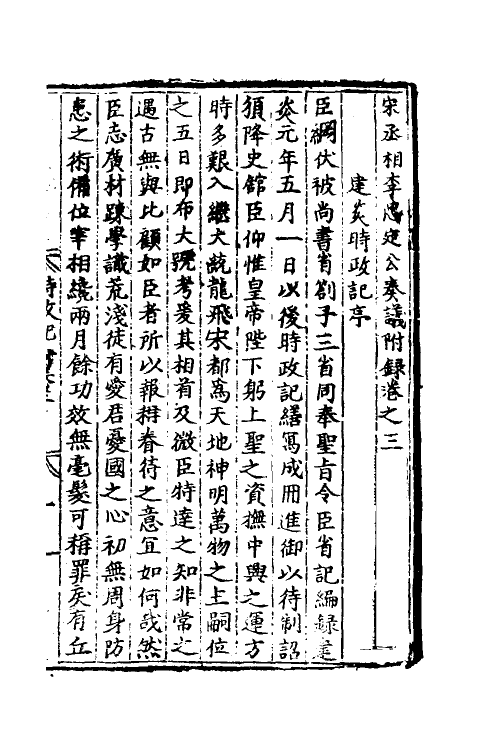 宋丞相李忠定公奏議附錄卷之三
建炎時政記序
臣綱伏被尚書省劄子三省同奉聖旨令臣省記編錄建
炎元年五月一日以後時政記繕寫成冊進御以待制詔
頒降史館臣仰惟皇帝陛下躬上聖之資撫中興之運方
時多艱入繼大統龍飛宋都為天地神明萬物之主嗣位
之五日即布大號考爰其相首及微臣特達之知非常之
遇古無與比顧如臣者所以報稱眷待之意宜如何哉然
臣志廣材踈學識荒淺徒有愛君憂國之心初無周身防
患之術備位宰相繞兩月餘功效無毫髮可稱罪戾有丘
時政記